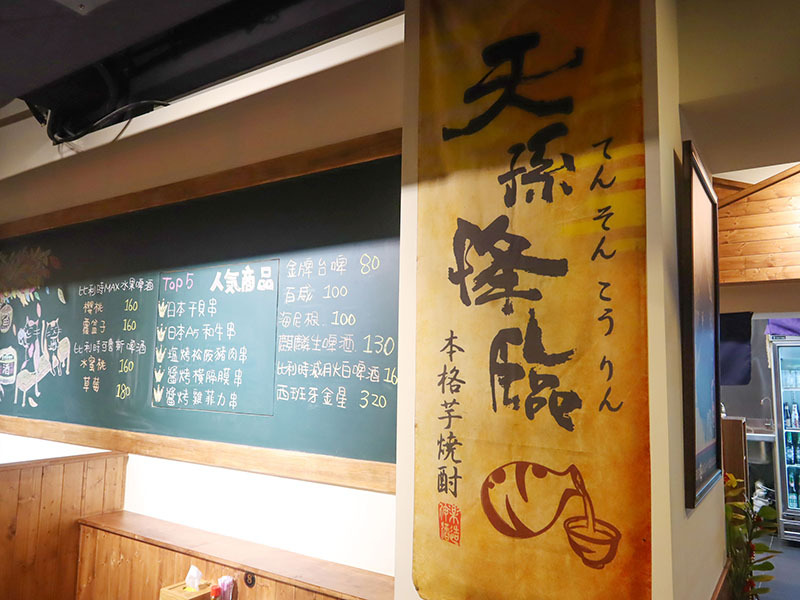 比利時MAX水果啤酒
櫻桃 160
覆盆子 160
水蜜桃 160
草莓 180
Top 5 人氣商品
日本干貝串
日本A5和牛串
塩烤松阪豬肉串
醬烤橫隔膜串
醬烤雞菲力串
金牌台啤 80
百威 100
海尼根 100
麒麟生啤酒 130
西班牙金星 320
天孫降臨
てんそん こうりん
本格芋焼酎
酒
8